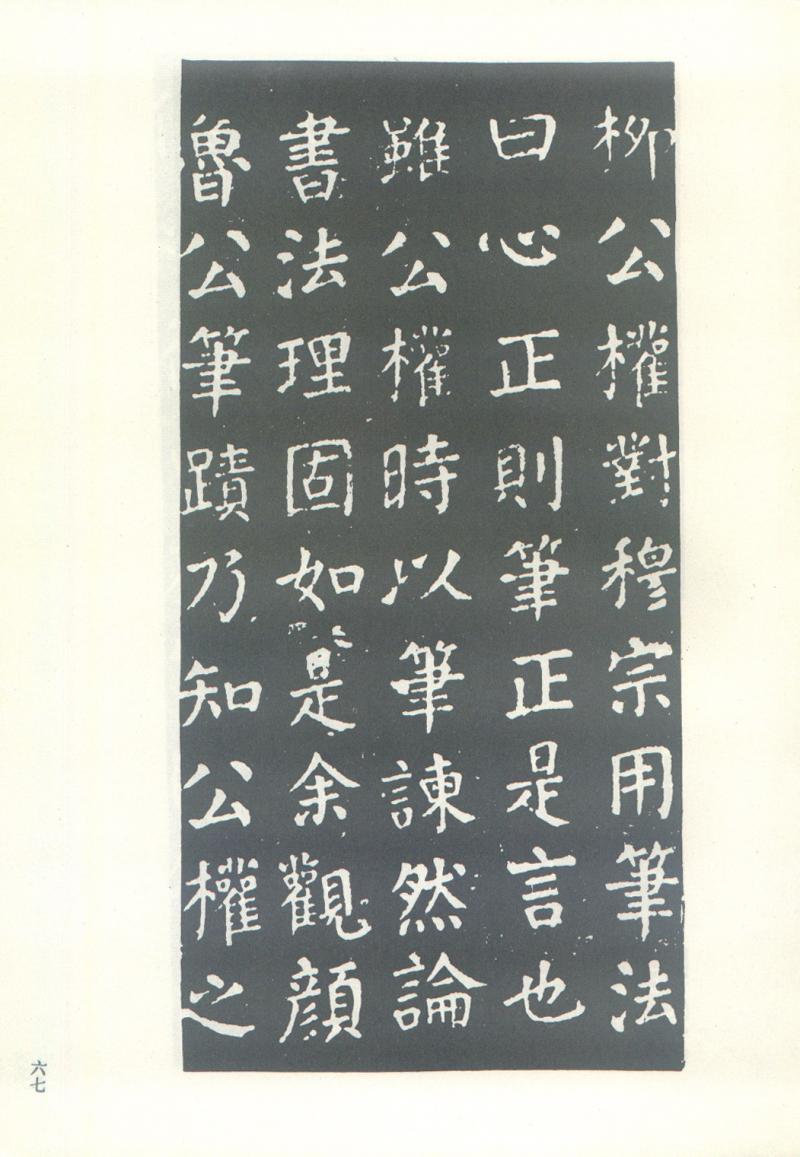 柳公權對穆宗用筆法
曰心正則筆正是言也
雖公權時以筆諫然論
書法理固如是余觀顔
魯公筆蹟乃知公權之
六七